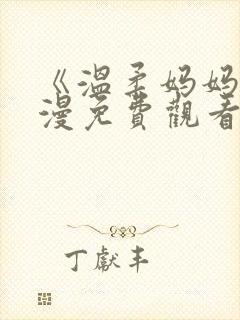 《溫柔妈妈
漫免費觀看
丁獻丰